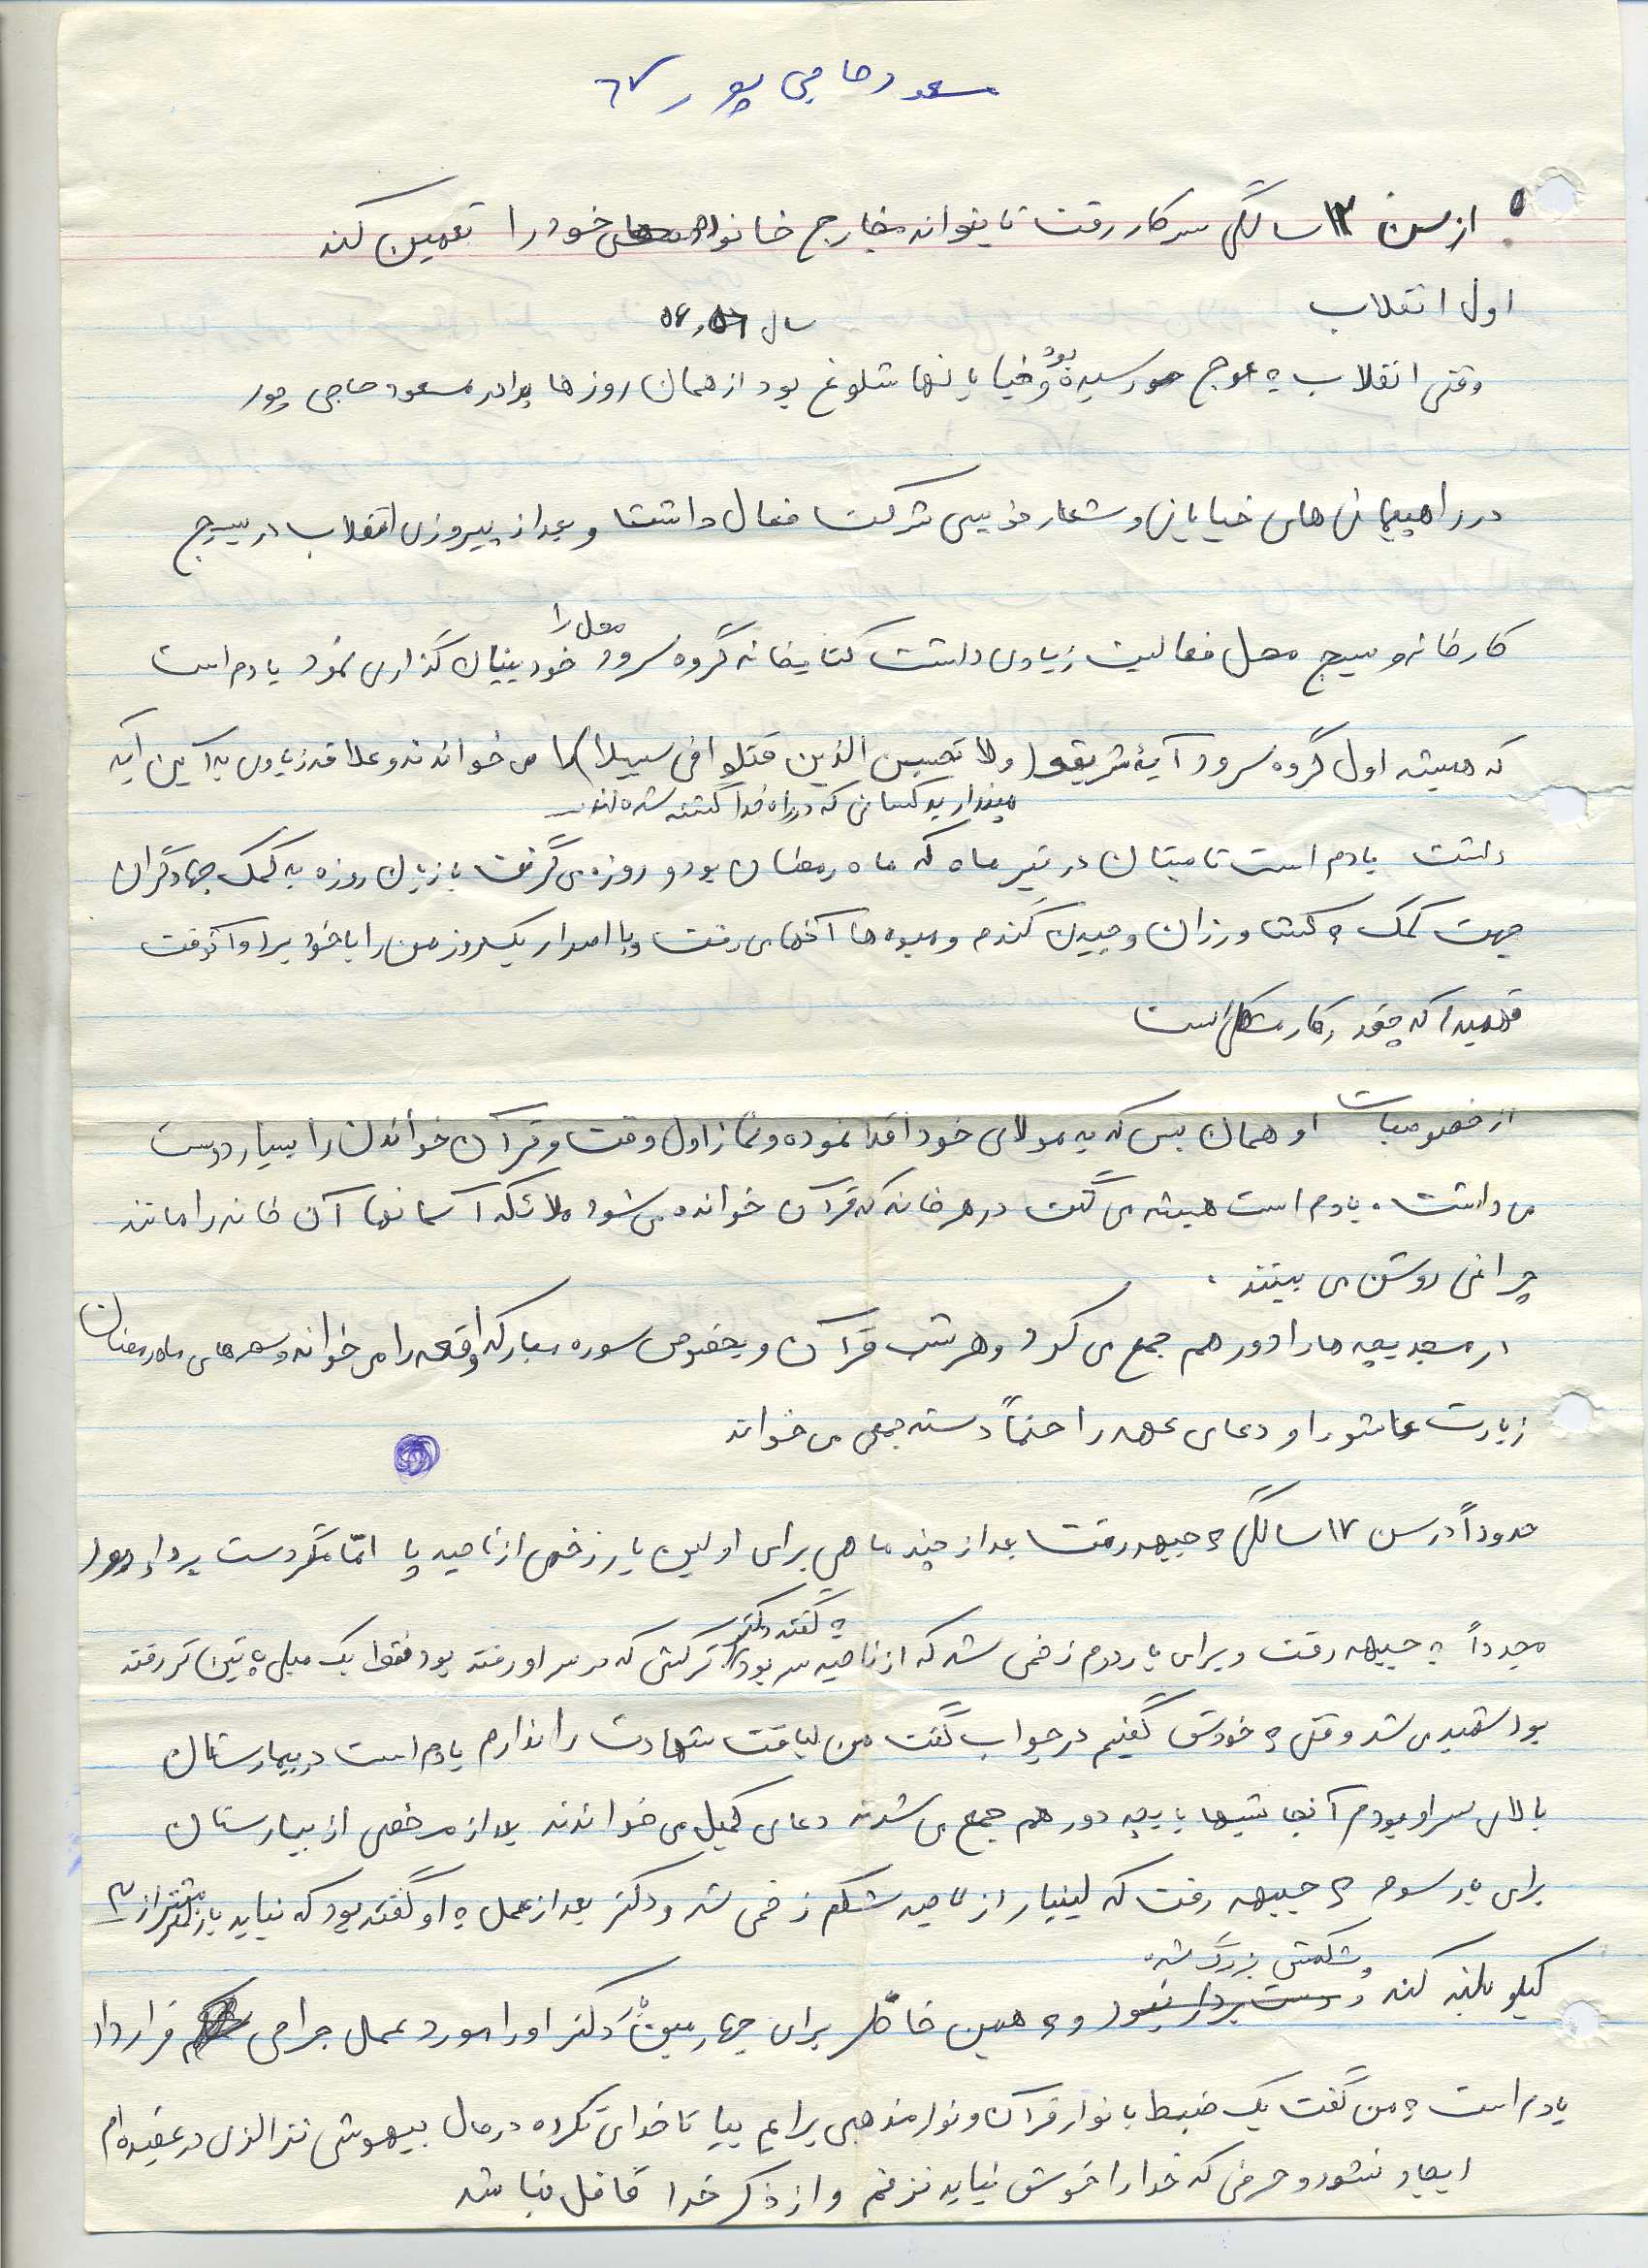 مسعود حاجی پور ۶۷
از سن ۱۳ سالگی سر کار رفت تا بتواند مخارج خانواده خود را تعمین کند
اول انقلاب
سال ۵۶
وقتی انقلاب به عوج رسیده بود و خیابانها شلوغ بود از همان روزها برادر مسعود حاجی پور
در راهپیمائی های خیابانی و شعار نویسی شرکت فعال داشت و بعد از پیروزی انقلاب در بسیج
کارخانه و بسیج محل فعالیت زیادی داشت کتابخانه گروه سرود محل را خود بنیان گذاری نمود یادم است
که همیشه اول گروه سرود آیهٔ شریفه (ولا تحسبن الذین قتلو افی سبیلا) را می خواندند و علاقه زیادی به این آیه
مپندارید کسانی که در راه خدا کشته شده اند
داشت یادم است تابستان در تیر ماه که ماه رمضان بود و روزه می گرفت با زبان روزه به کمک جهادگران
جهت کمک به کشاورزان و چیدن گندم و میوه ها آنجا می رفت و با اصرار یکروز من را با خود برد و آنوقت
فهمیدم که چقدر کار مشکل است
از خصوصیات او همان بس که به مولای خود اقتدا نموده و نماز اول وقت و قرآن خواندن را بسیار دوست
می داشت. یادم است همیشه می گفت در هر خانه که قرآن خوانده می شود ملائکه آسمانها آن خانه را مانند
چراغی روشن می بینند.
در مسجد بچه ها را دور هم جمع می کرد و هر شب قرآن و بخصوص سوره مبارکه واقعه را می خواند و سحرهای ماه رمضان
زیارت عاشورا و دعای عهد را حتماً دسته جمعی می خواند
حدوداً در سن ۱۷ سالگی به جبهه رفت بعد از چند ماهی برای اولین بار زخمی از ناحیه پا امّا مگر دست بردار بود
مجدداً به جبهه رفت و برای بار دوم زخمی شد که از ناحیه سر بود به گفته دکتر ترکشی که در سر او رفته بود فقط یک میلی پائین تر رفته
بود شهید می شد وقتی به خودش گفتیم در جواب گفت من لیاقت شهادت را ندارم یادم است در بیمارستان
بالای سر او بودم آنجا شبها با بچه دور هم جمع می شدند دعای کمیل می خواندند بعد از مرخصی از بیمارستان
برای بار سوم به جبهه رفت که اینبار از ناحیه شکم زخمی شد و دکتر بعد از عمل به او گفته بود که نباید بار بیشتر از ۳
کیلو بلند کند و شکمش بزرگ شده و به همین خاطر برای چهارمین بار دکتر او را مورد عمل جراحی قرار داد
یادم است به من گفت یک ضبط با نوار قرآن و نوار مذهبی برایم بیا تا خدای نکرده در حال بیهوشی تزلزلی در عقیده ام
ایجاد نشود و حرفی که خدا را خوش نیاید نزنم و از ذکر خدا غافل نباشد